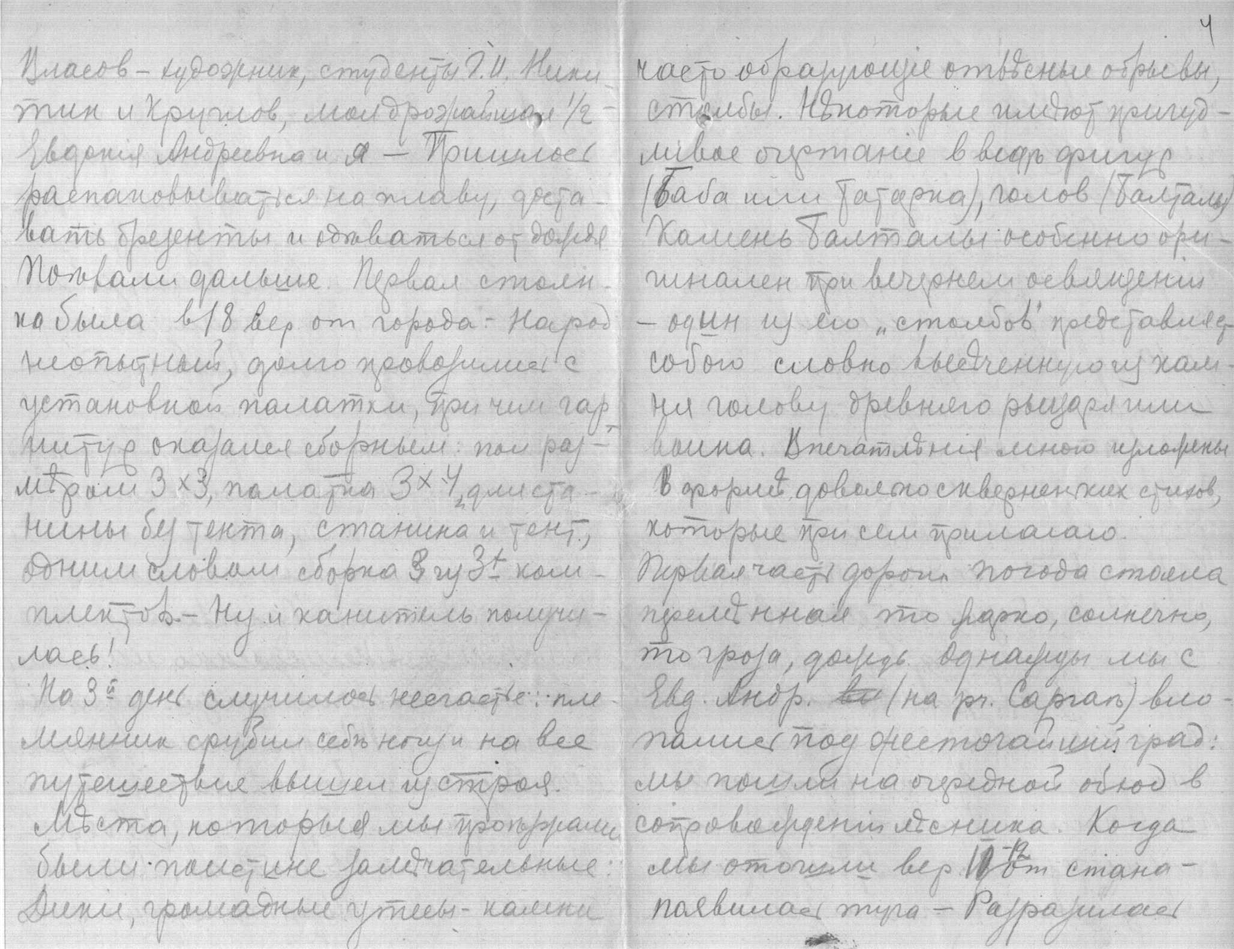 Власов – художник, студенты Г.И. Ники
тин и Круглов, моя дрожайшая 1/2 –
Евдокія Андреевна и я – Пришлось
распаковываться на плаву, доста-
вать брезенты и одѣваться от дождя
Поѣхали дальше. Первая стоян-
ка была в 18 вер от города – народ
неопытный, долго провозились с
установкой палатки, при чем гар-
нитур оказался сборным: пол раз-
мѣром 3 × 3, палатка 3 × 4, для ста-
нины без тента, станина и тент,
одним словом сборка 3 из 3х ком-
плектов – Ну и канитель получи-
лась!
На 3й день случилось несчастье: пле-
мянник срубил себѣ ногу и на все
путешествие вышел из строя.
Мѣста, которыя мы проѣзжали
были поистине замѣчательные:
Дикие, громадные утесы – камни
4
часто образующіе отвѣсные обрывы,
столбы. Нѣкоторые имѣют причуд-
ливое очертаніе в видѣ фигур
(Баба или Татарка), голов (Балталы)
Камень Балталы особенно ори-
гинален при вечернем освящении
– один из его „столбов" представляет
собою словно высѣченную из кам-
ня голову древняго рыцаря или
воина. Впечатлѣния много изложены
в формѣ довольно скверненьких стихов,
которые при сем прилагаю.
Первая часть дороги погода стояла
премѣнная то жарко, солнечно,
то гроза, дождь. Однажды мы с
Евд. Андр. (на рч. Саргая) вло-
пались под жесточайший град:
мы пошли на очередной обход в
сопровождении лѣсника. Когда
мы отошли вер от стана –
появилась туча – Разразилась